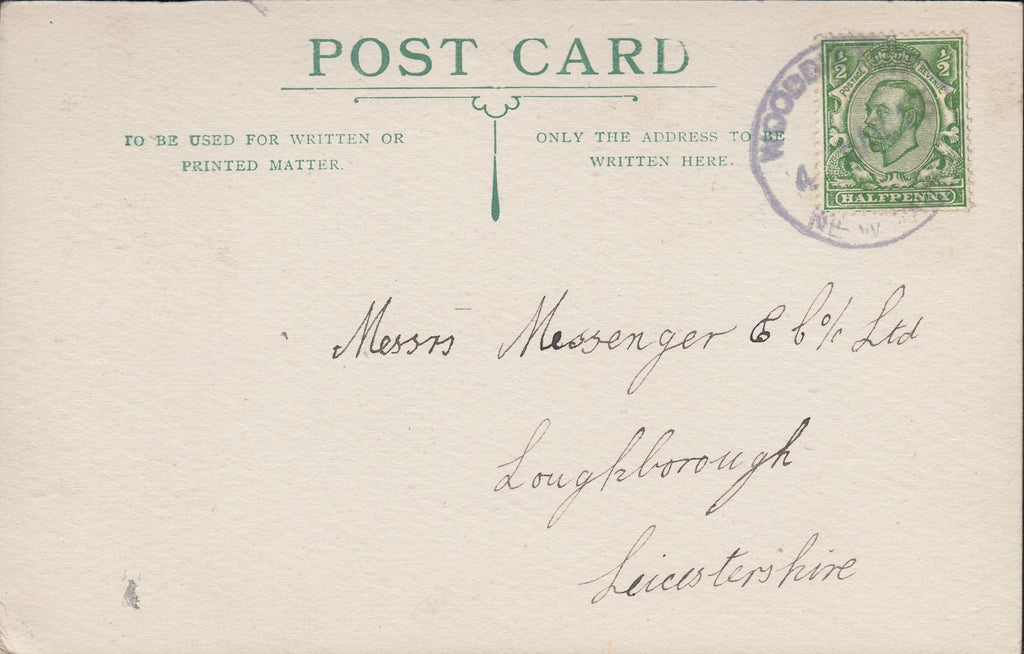 POST CARD
TO BE USED FOR WRITTEN OR
PRINTED MATTER.
ONLY THE ADDRESS TO BE
WRITTEN HERE.
½ ½
POSTAGE REVENUE
HALFPENNY
Messrs Messenger & Co/c Ltd
Loughborough
Leicestershire